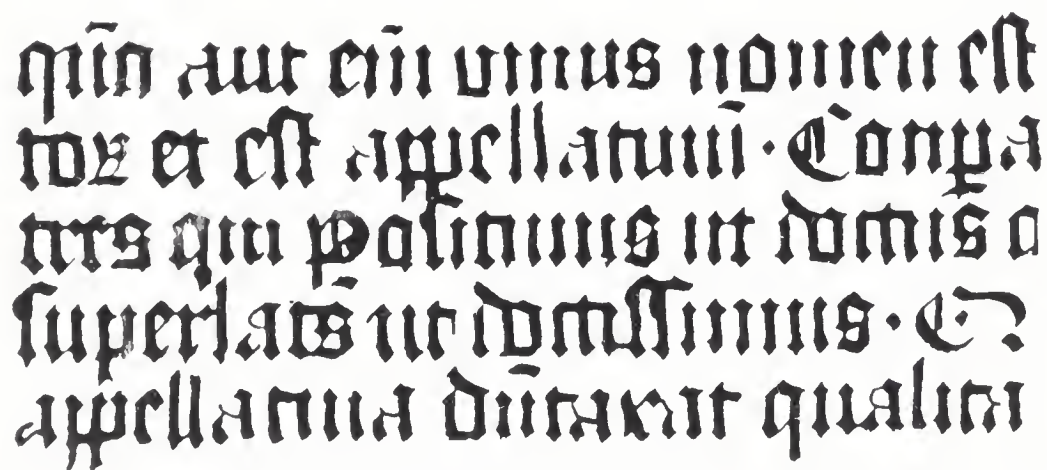 qūo aut em̄ vnius nomen est
toꝝ et est appellatiuū · Compa
tres qui positiuus ut doctus c
superlatꝰ ut doctissimus · C
appellatiua dūtaxat qualita